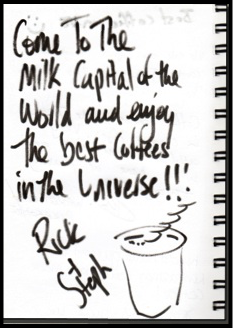 Come To The
Milk Capital of the
World and enjoy
the best Coffees
in the Universe!!!
Rick
+
Steph